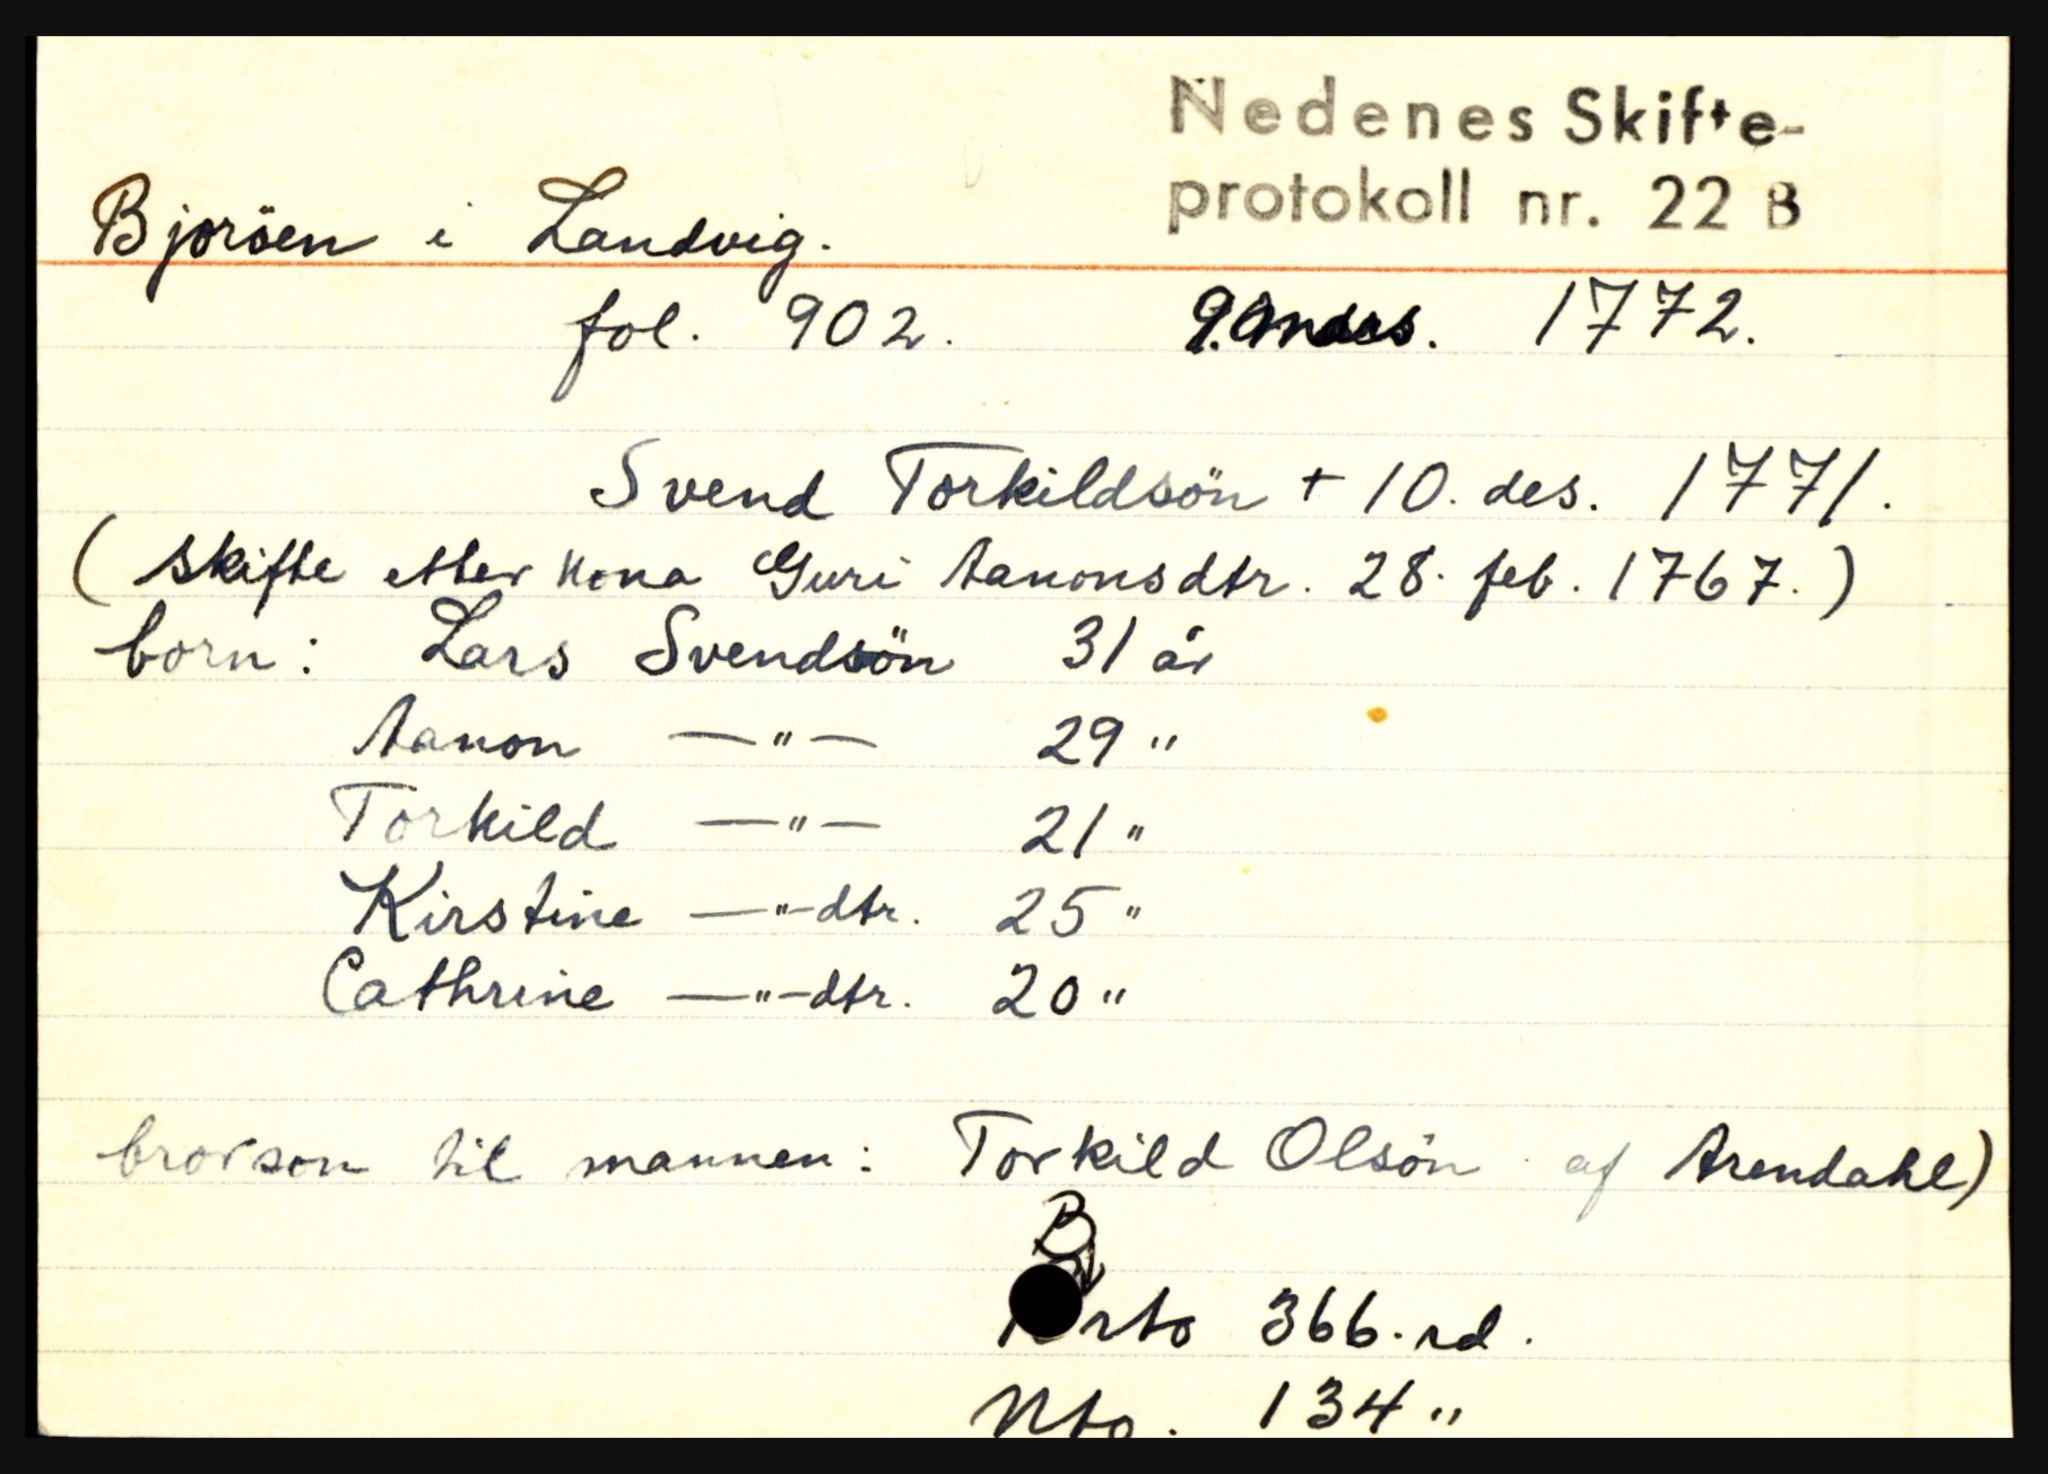 Nedenes Skifte-
protokoll nr. 22 B
Bjoröen i Landvig.
fol. 902. 9. mars. 1772.
Svend Torkildsön + 10. des. 1771.
(skifte etter kona Guri Aanonsdtr. 28. feb. 1767.)
born: Lars Svendsön 31 år
Aanon —"— 29 "
Torkild —"— 21 "
Kirstine —"—dtr. 25 "
Cathrine —"—dtr. 20 "
brorson til mannen: Torkild Olsön af Arendahl)
B
rto 366. rd.
Nto. 134 "